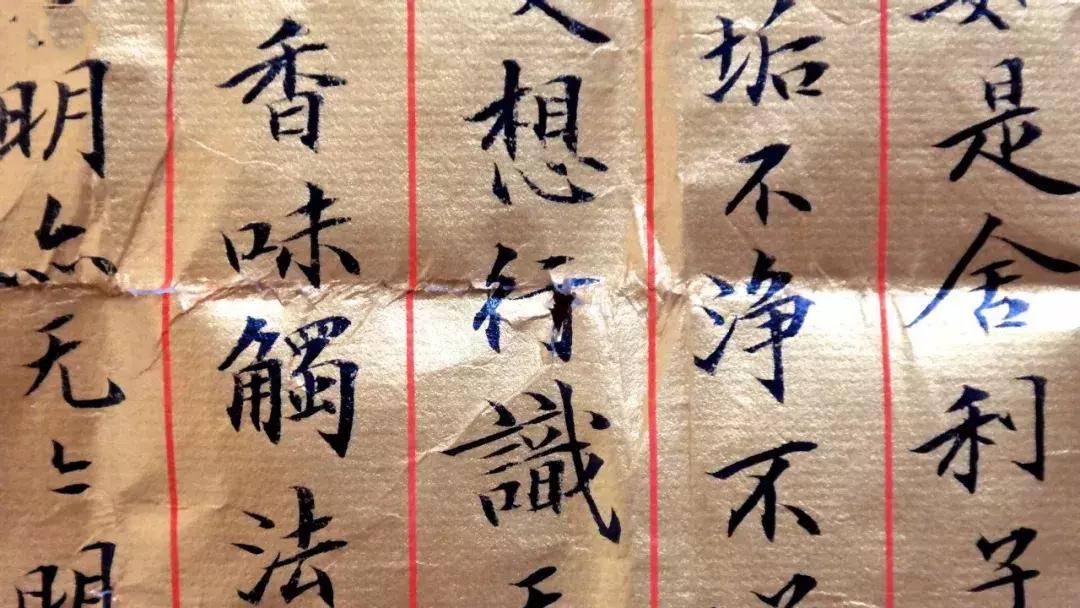 是舍利子
垢不浄不
想行識
香味觸法
明亦无〻明